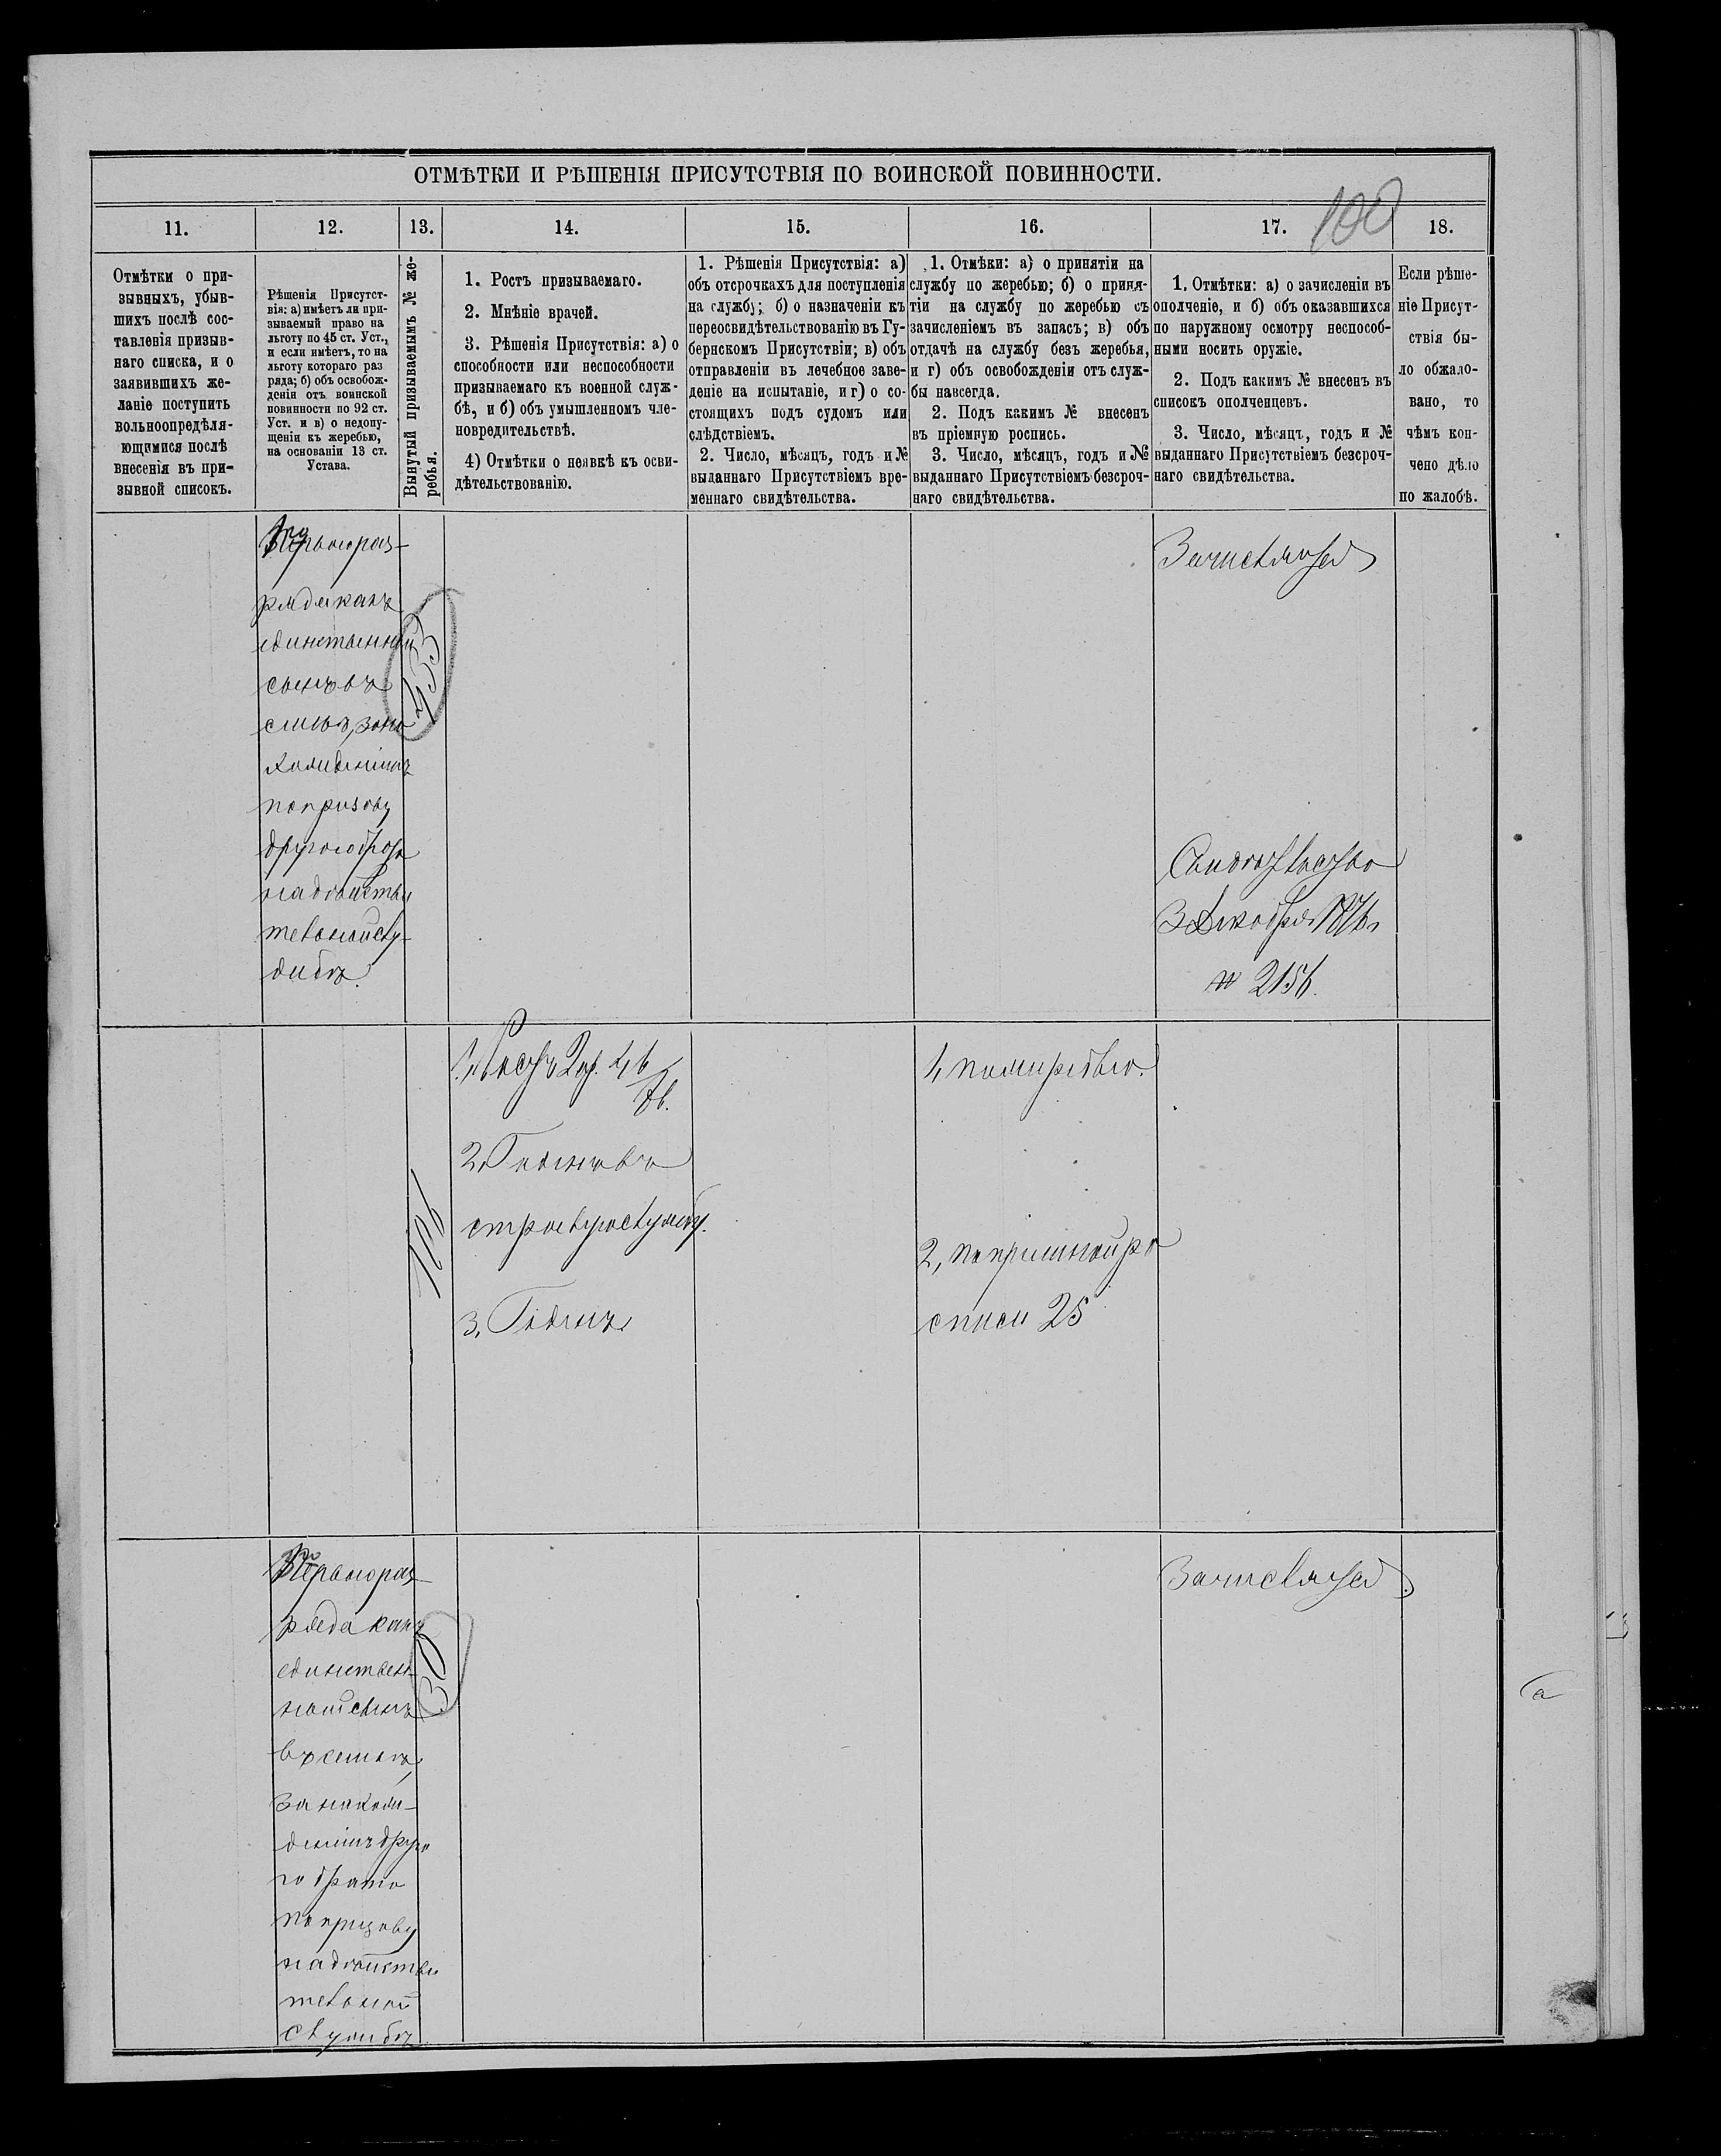 ОТМѢТКИ И РѢШЕНІЯ ПРИСУТСТВІЯ ПО ВОИНСКОЙ ПОВИННОСТИ.
100
11.
12.
13.
14.
15.
16.
17.
18.
Отмѣтки о при-
зывныхъ, убыв-
шихъ послѣ сос-
тавленія призыв-
наго списка, и о
заявившихъ же-
ланіе поступить
вольноопредѣля-
ющимися послѣ
внесенія въ при-
зывной списокъ.
Рѣшенія Присутст-
вія: а) имѣетъ ли при-
зываемый право на
льготу по 45 ст. Уст.,
и если имѣетъ, то на
льготу котораго раз
ряда; б) объ освобож-
деніи отъ воинской
повинности по 92 ст.
Уст. и в) о недопу-
щеніи къ жеребью,
на основаніи 13 ст.
Устава.
Вынутый призываемымъ № же-
ребья.
1. Ростъ призываемаго.
2. Мнѣніе врачей.
3. Рѣшенія Присутствія: а) о
способности или неспособности
призываемаго къ военной служ-
бѣ, и б) объ умышленномъ чле-
новредительствѣ.
4) Отмѣтки о неявкѣ къ осви-
дѣтельствованію.
1. Рѣшенія Присутствія: а)
объ отсрочкахъ для поступленія
на службу; б) о назначеніи къ
переосвидѣтельствованію въ Гу-
бернскомъ Присутствіи; в) объ
отправленіи въ лечебное заве-
деніе на испытаніе, и г) о со-
стоящихъ подъ судомъ или
слѣдствіемъ.
2. Число, мѣсяцъ, годъ и №
выданнаго Присутствіемъ вре-
меннаго свидѣтельства.
1. Отмѣки: а) о принятіи на
службу по жеребью; б) о приня-
тіи на службу по жеребью съ
зачисленіемъ въ запасъ; в) объ
отдачѣ на службу безъ жеребья,
и г) объ освобожденіи отъ служ-
бы навсегда.
2. Подъ какимъ № внесенъ
въ пріемную роспись.
3. Число, мѣсяцъ, годъ и №
выданнаго Присутствіемъ безсроч-
наго свидѣтельства.
1. Отмѣтки: а) о зачисленіи въ
ополченіе, и б) объ оказавшихся
по наружному осмотру неспособ-
ными носить оружіе.
2. Подъ какимъ № внесенъ въ
списокъ ополченцевъ.
3. Число, мѣсяцъ, годъ и №
выданнаго Присутствіемъ безсроч-
наго свидѣтельства.
Если рѣше-
ніе Присут-
ствія бы-
ло обжало-
вано, то
чѣмъ кон-
чено дѣло
по жалобѣ.
Перваго раз-
ряда какъ
единственный
сынъ въ
семьѣ, за на
хожденіемъ
по призыву
другого брата
на дѣйстви
тельной слу-
жбѣ.
433
Зачисляется
Свидѣтельство
3 Декабря 1876 г
№ 2156.
1, Ростъ 2 ар. 4 6/8 в.
2, Годенъ въ
строевую службу.
3, Годенъ
106
1, по жеребью.
2, по пріемной ро
списи 25
Перваго раз-
ряда какъ
единствен-
ной сынъ
въ семьѣ,
за нахож-
деніемъ друго
го брата
по призыву
на дѣйстви
тельной
службѣ
30
Зачисляется.